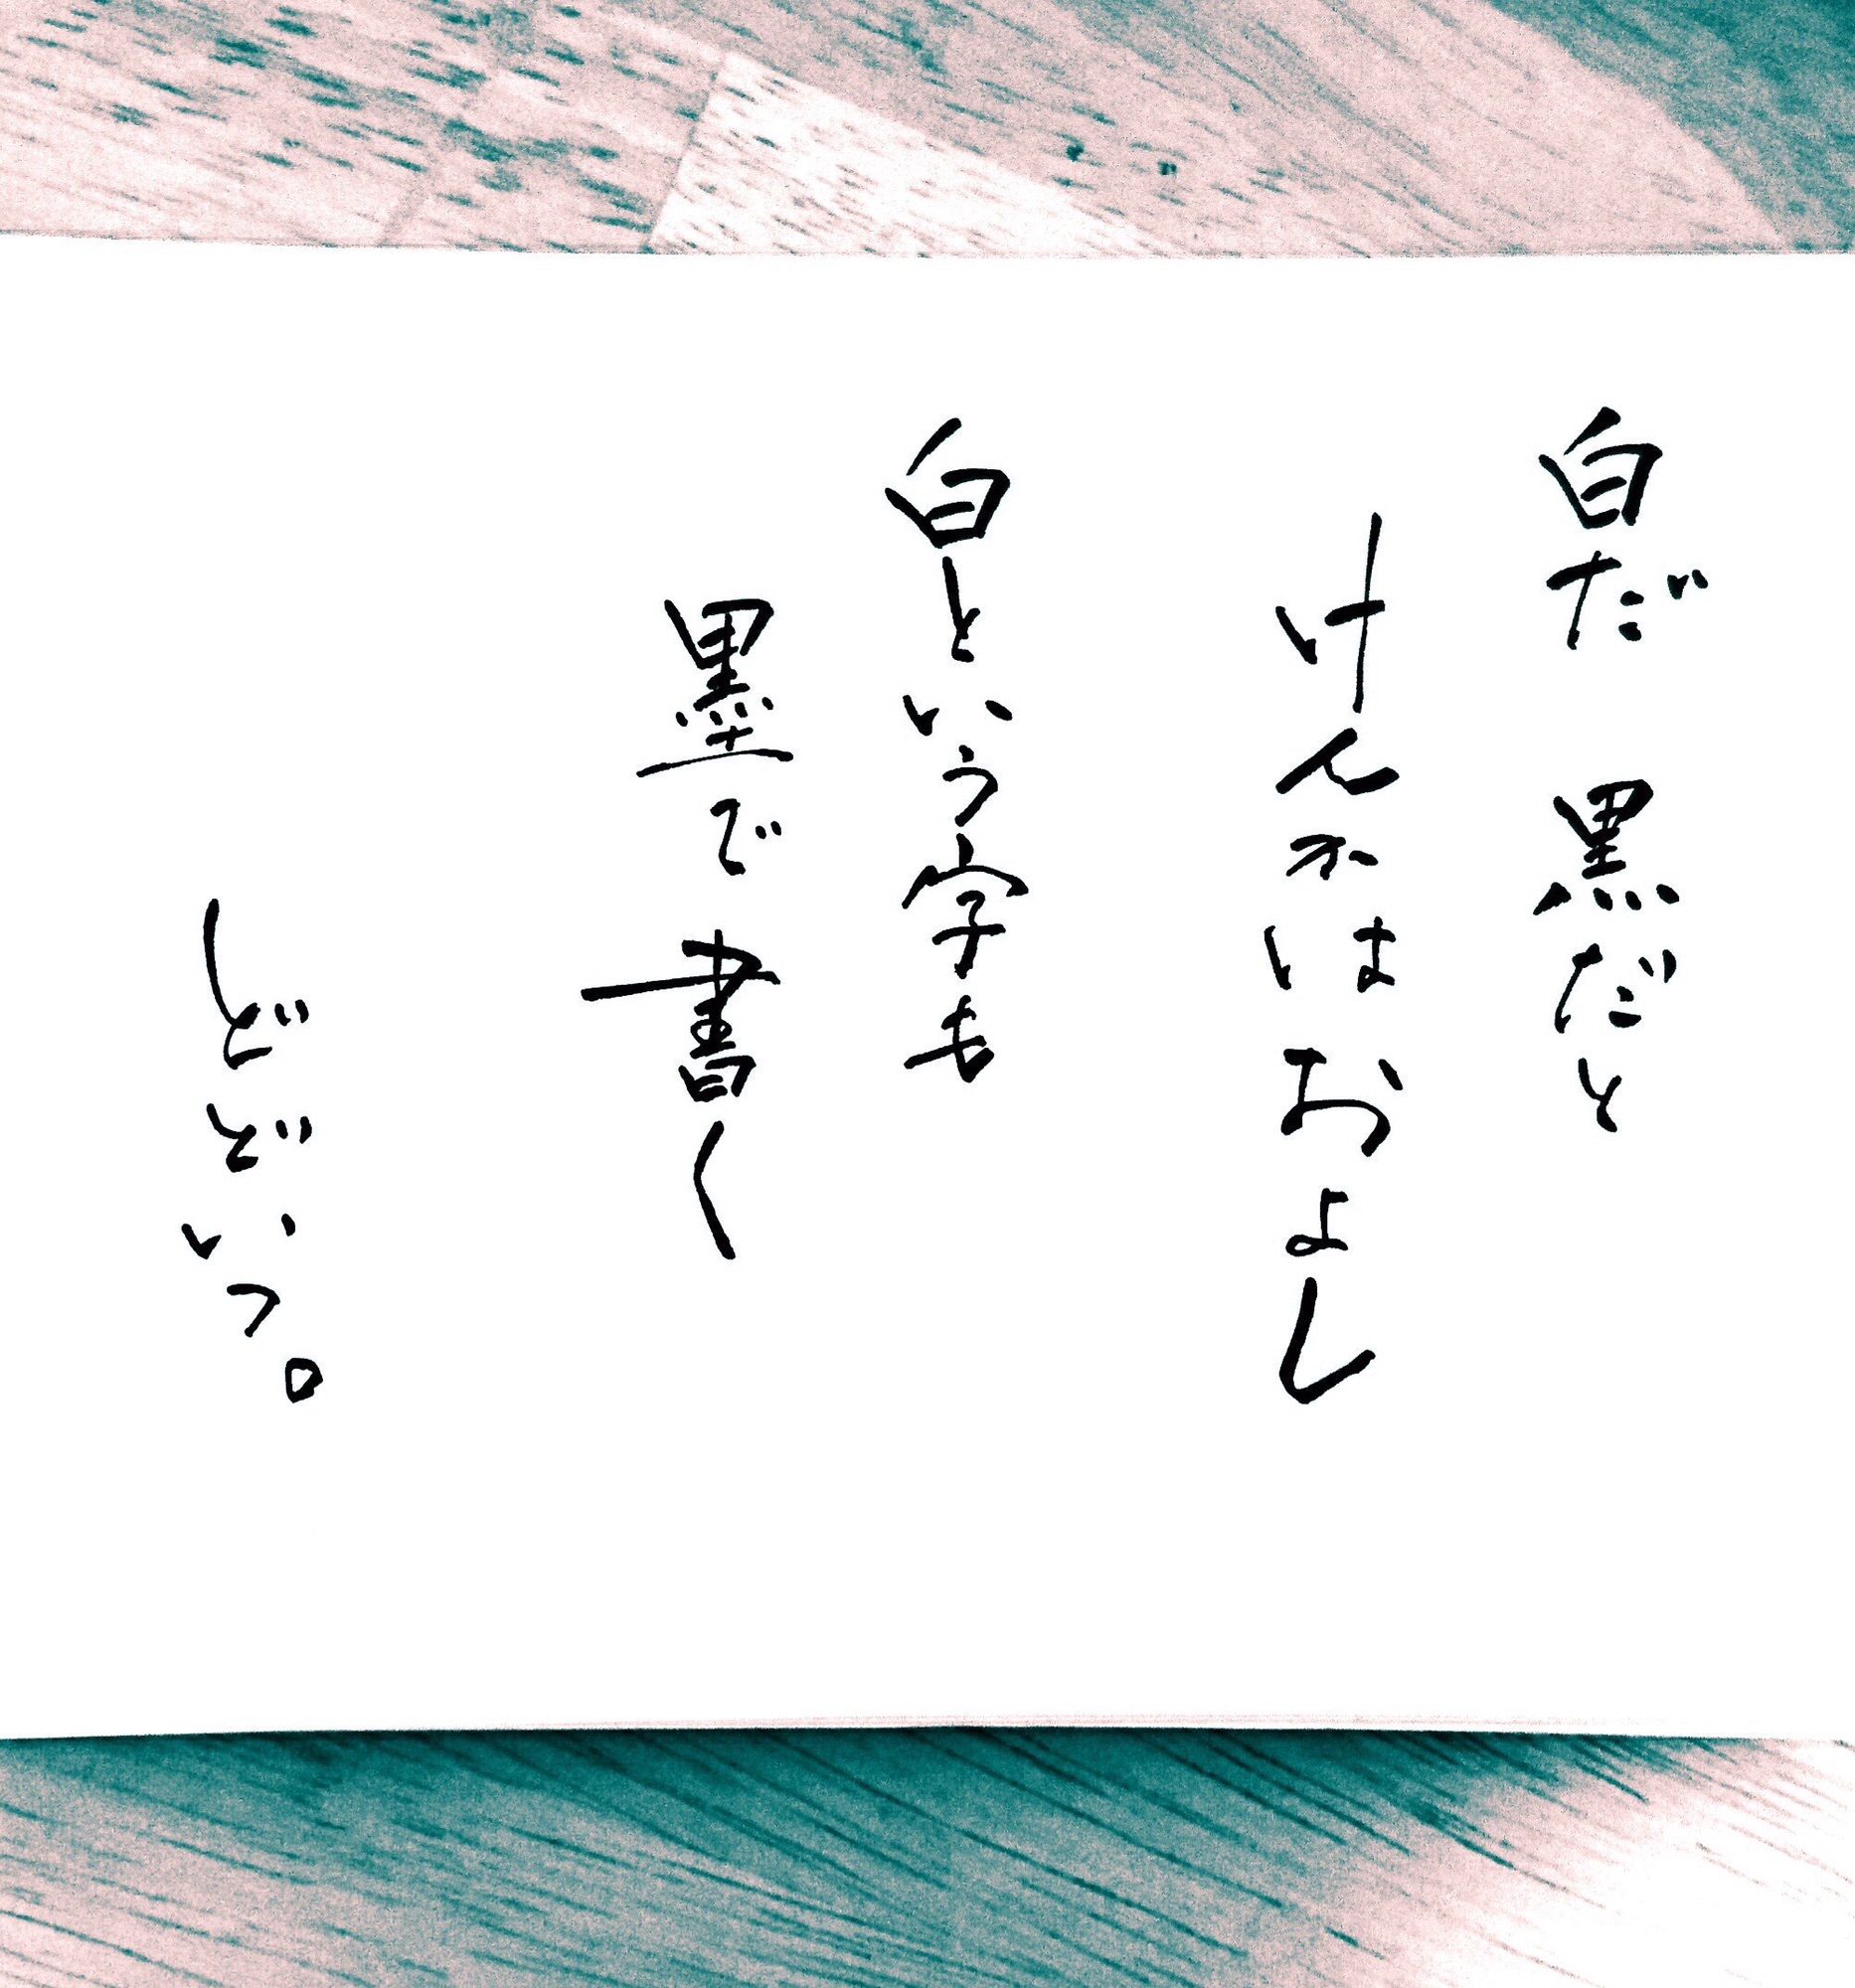 白だ 黒だと
けんかはおよし
白という字も
墨で書く
どどいつ。